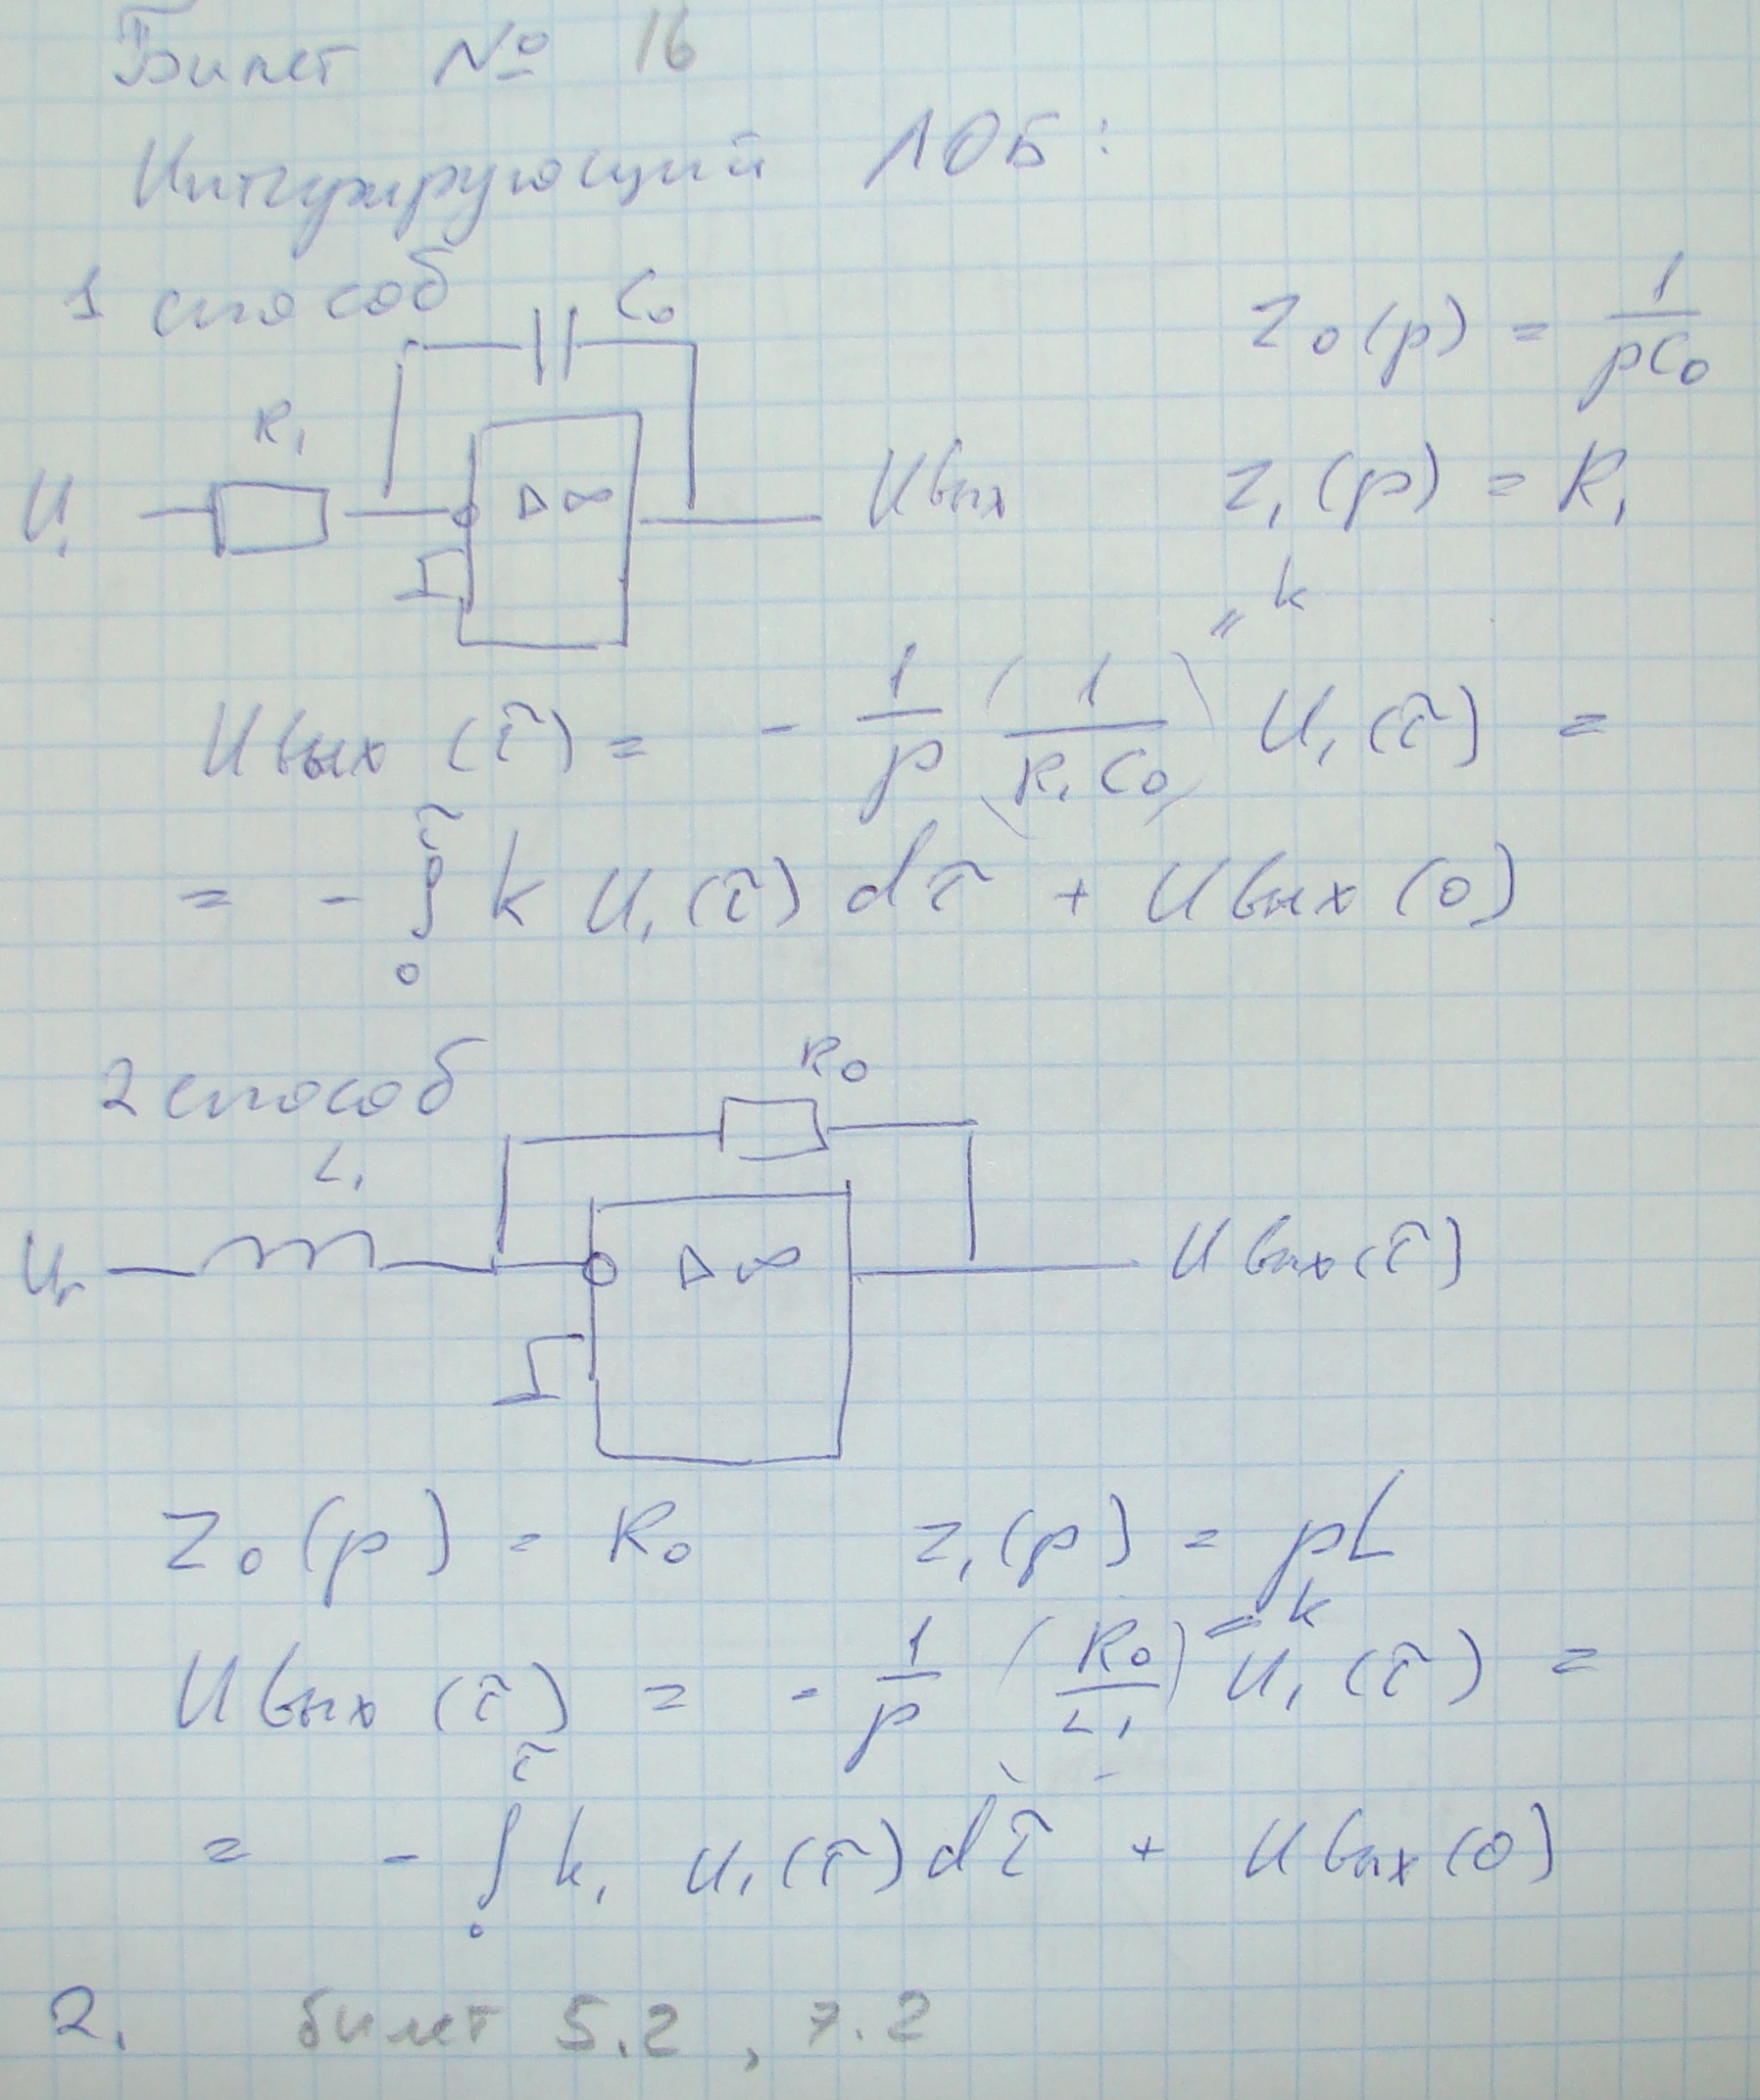 Билет № 16
Интегрирующий ЛОБ:
1 способ
C₀
Z₀(p) = 1/pC₀
R₁
U₁
▷ ∞
Uвых
Z₁(p) = R₁
Uвых (τ) = - 1/p (1/R₁C₀)" k U₁(τ) =
= - ∫₀^τ k U₁(τ) dτ + Uвых(0)
2 способ
R₀
L₁
U₁
▷ ∞
Uвых(τ)
Z₀(p) = R₀ Z₁(p) = pL
Uвых (τ) = - 1/p (R₀/L₁) = k U₁(τ) =
= - ∫₀^τ k₁ U₁(τ) dτ + Uвых(0)
2. билет 5.2, 7.2